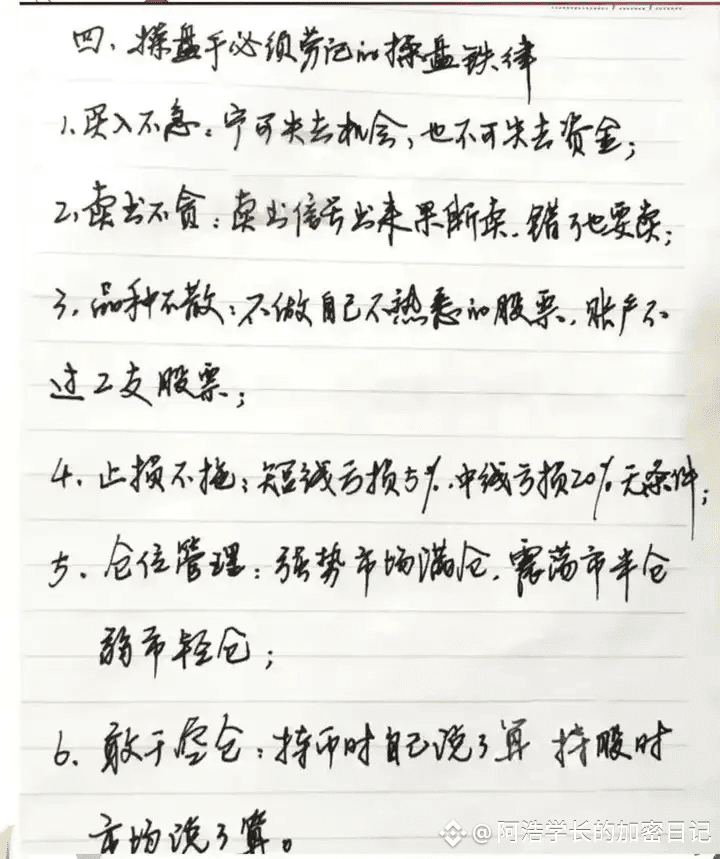 四、操盘手必须劳记的操盘铁律
1、买入不急：宁可失去机会，也不可失去资金；
2、卖出不贪：卖出信号出来果断卖、错了也要卖；
3、品种不散：不做自己不熟悉的股票、账户不
过2支股票；
4、止损不拖：短线亏损5%、中线亏损20%无条件；
5、仓位管理：强势市场满仓、震荡市半仓
弱市轻仓；
6、敢于空仓：持币时自己说了算 持股时
市场说了算。
@阿浩学长的加密日记